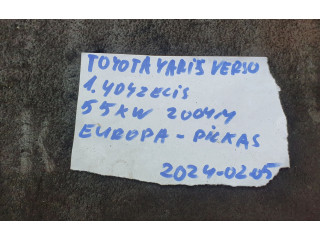 TOYOTA YARIS VERSO
1.4D4Z ECIS
55KW 2004M
EUROPA - PILKAS
2024-02-05